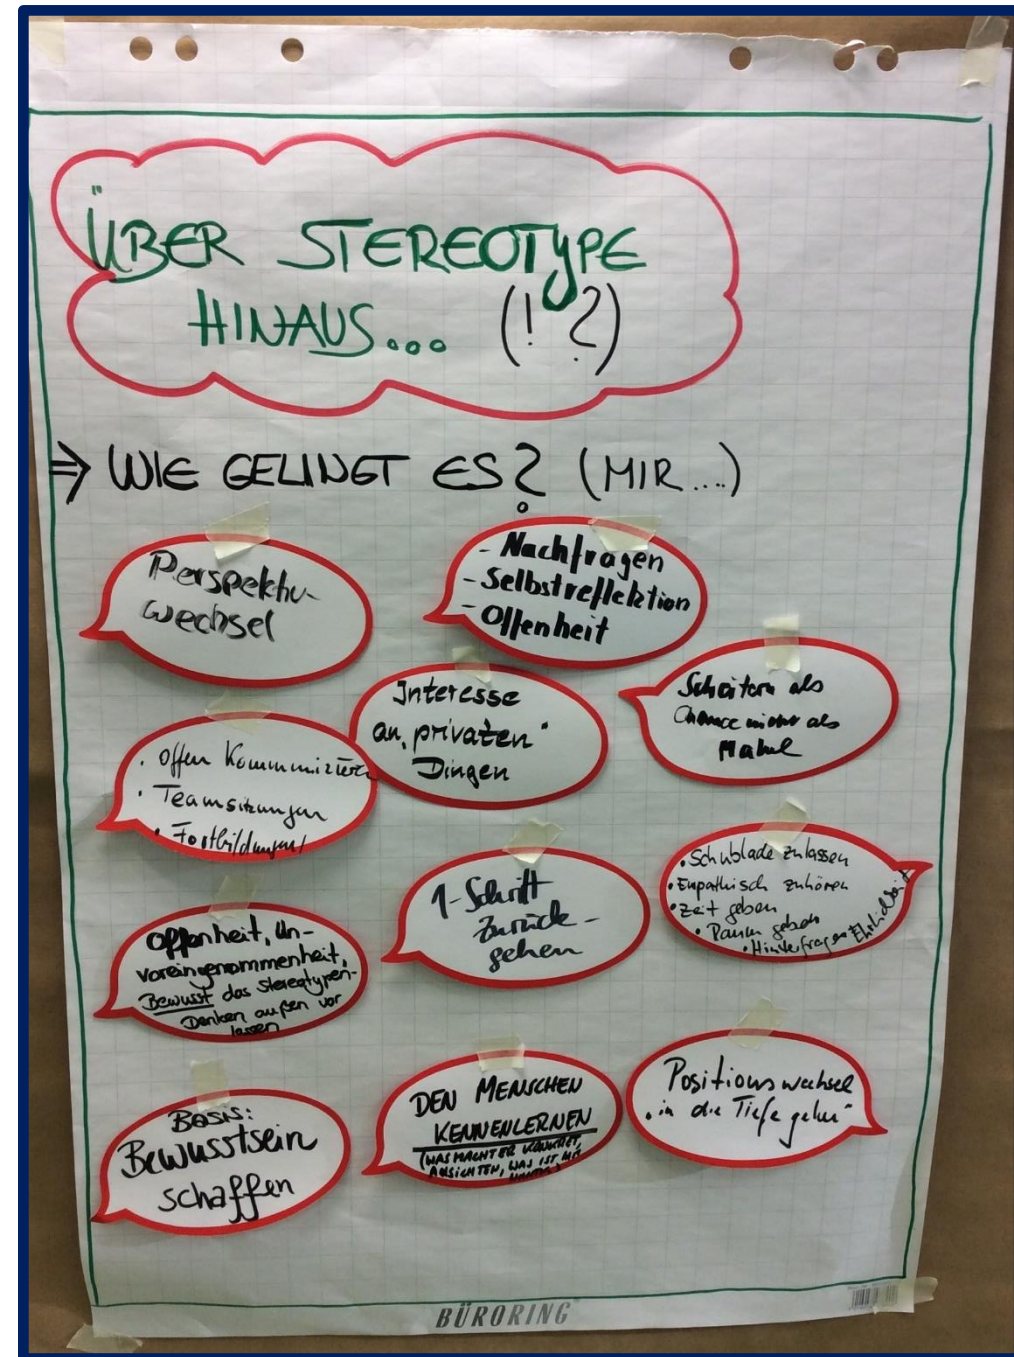 ÜBER STEREOTYPE
HINAUS... (!?)
⇒ WIE GELINGT ES? (MIR....)
Perspektiv-
wechsel
- Nachfragen
- Selbstreflektion
- Offenheit
Interesse
an „privaten"
Dingen
Scheitern als
Chance nicht als
Makel
· offen Kommunizieren
· Teamsitzungen
· Fortbildungen
1-Schritt
zurück-
gehen
• Schublade zulassen
• Empathisch zuhören
• Zeit geben
• Raum geben
• Hinterfragen Ehrlichkeit
Offenheit, Un-
voreingenommenheit,
Bewusst das Stereotypen-
Denken außen vor
lassen
Basis:
Bewusstsein
schaffen
DEN MENSCHEN
KENNENLERNEN
(WAS MACHT ER KONKRET,
ANSICHTEN, WAS IST
Positionswechsel
„in die Tiefe gehen"
BÜRORING